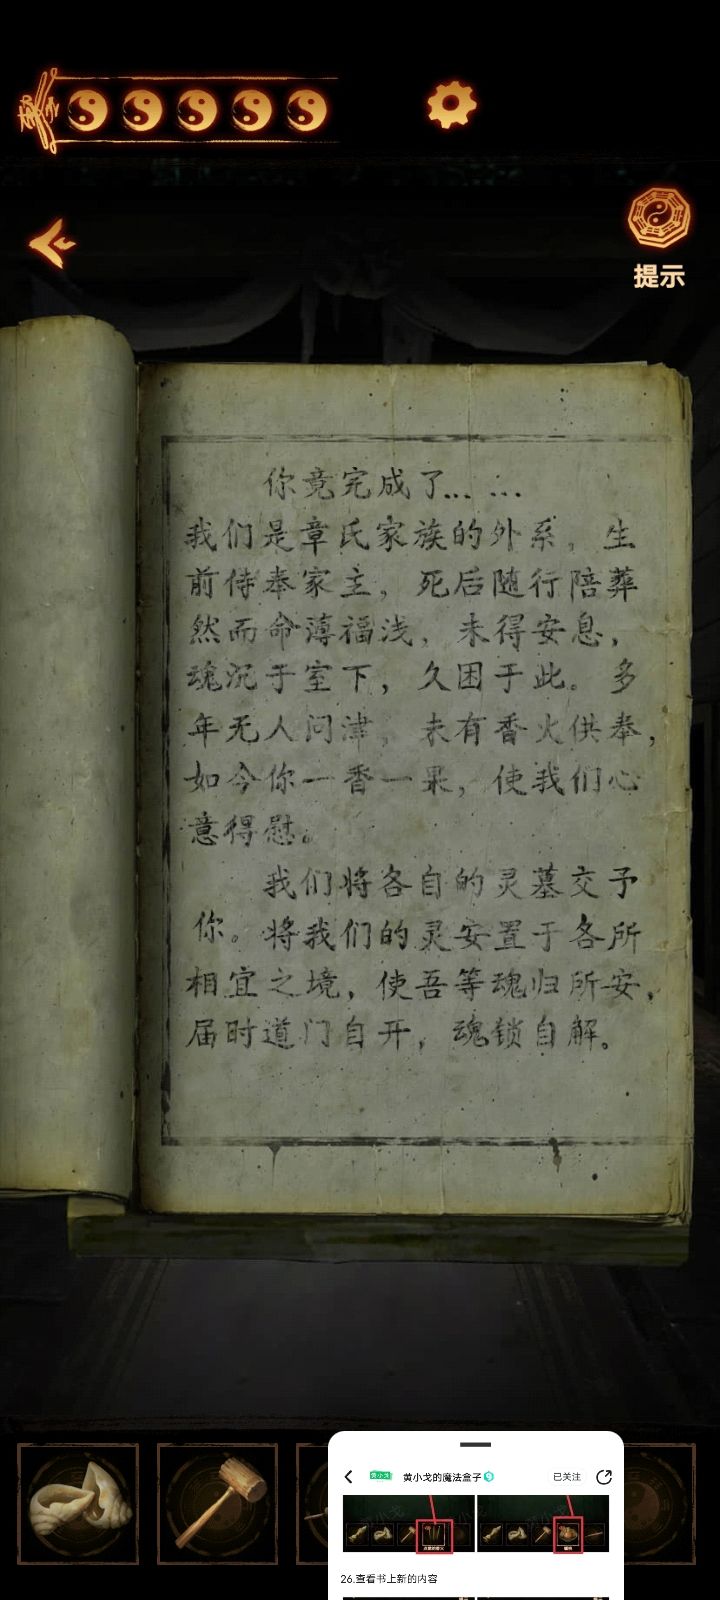 提示
你竟完成了... ...
我们是章氏家族的外系，生
前侍奉家主，死后随行陪葬
然而命薄福浅，未得安息，
魂沉于室下，久困于此。多
年无人问津，未有香火供奉，
如今你一香一果，使我们心
意得慰。
我们将各自的灵墓交予
你。将我们的灵安置于各所
相宜之境，使吾等魂归所安，
届时道门自开，魂锁自解。
黄小戈的魔法盒子
已关注
26.查看书上新的内容